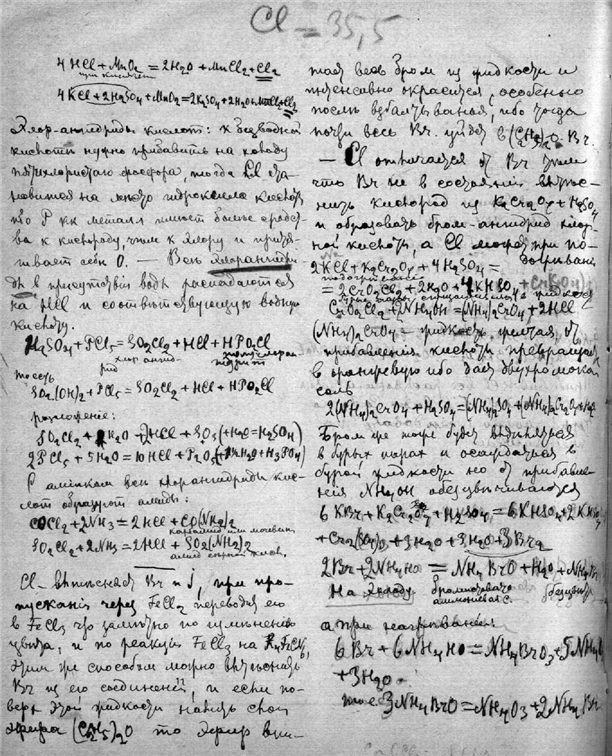 Cl = 35,5
4 HCl + MnO2 = 2H2O + MnCl2 + Cl2
при
4 KCl + 2H2SO4 + MnO2 = 2K2SO4 + 2H2O + MnCl2 + Cl2
Хлор-ангидриды кислот: к безводной
кислоте нужно прибавить на холоду
пятихлористаго фосфора, тогда Cl ста-
новится на место гидроксила кислоты
ибо P как металл имеет более сродст-
ва к кислороду, чем к хлору и притя-
гивает себе O. — Все хлорангидри-
ды в присутствии воды распадаются
на HCl и соответствующую водную
кислоту.
H2SO4 + PCl5 = SO2Cl2 + HCl + HPO2Cl
хлор ангид-
рид
то есть
SO2(OH)2 + PCl5 = SO2Cl2 + HCl + HPO2Cl
разложение:
SO2Cl2 + H2O = 2HCl + SO3 (+H2O = H2SO4)
2PCl5 + 5H2O = 10HCl + P2O5 (+3H2O = H3PO4)
С аммиаком все хлорангидриды кис-
лот образуют амиды:
COCl2 + 2NH3 = 2HCl + CO(NH2)2
карбамид или мочевина
SO2Cl2 + 2NH3 = 2HCl + SO2(NH2)2
амид серной кислоты
Cl — вытесняя Br и J, при про-
пускании через FeCl2 переводя его
в FeCl3 что заметно по изменению
цвета, и по реакции FeCl3 на
Этим же способом можно вытеснить
Br из его соединений, и если по-
верх этой жидкости налить слой
эфира (C2H5)2O то эфир вы-
тая весь бром из жидкости и
интенсивно окрасится, особенно
после взбалтыванья, ибо тогда
почти весь Br уйдет в (C2H5)2O.Br
— Cl отличается от Br этим
что Br не в состоянии вытес-
нить кислород из K2Cr2O7 + H2SO4
и образовать бром-ангидрид хромо-
ной кислоты, а Cl может при по-
догревании
2KCl + K2Cr2O7 + 4H2SO4 =
= 2CrO2Cl2 + 2H2O + 4KHSO4
жидкость
CrO2Cl2 + 4NH4OH = (NH4)2CrO4 + 2HCl
(NH4)2CrO4 = жидкость, желтая, от
прибавления кислоты превращая
в оранжевую ибо дал двухромокислая
соль
2(NH4)2CrO4 + H2SO4 = (NH4)2SO4 + (NH4)2Cr2O7 + H2O
Бром же тоже будет выделяться
в бурых парах и осаждаться в
бурой жидкости но от прибавле-
ния NH4OH обезцвечивается
6 KBr + K2Cr2O7 + H2SO4 = 6KHSO4 + 2KHSO4
+ Cr2(SO4)3 + 3H2O + 3H2O + 3Br2
2Br + 2NH4HO = NH4BrO + H2O + NH4Br
На холоду бромноватово аммониевая с. безцветн
а при нагревании:
6 Br + 6 NH4HO = NH4BrO3 + 5NH4
+ 3H2O
то е. 3NH4BrO = NH4O3 + 2NH4Br